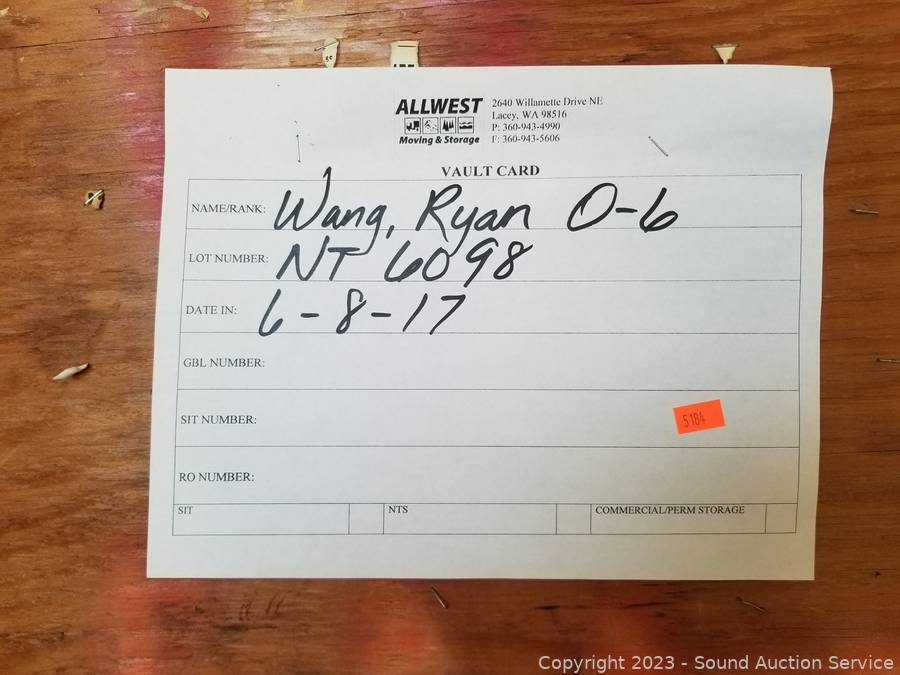 ALLWEST
Moving & Storage
2640 Willamette Drive NE
Lacey, WA 98516
P: 360-943-4990
F: 360-943-5606
VAULT CARD
NAME/RANK: Wang, Ryan O-6
LOT NUMBER: NT 6098
DATE IN: 6-8-17
GBL NUMBER:
SIT NUMBER:
5184
RO NUMBER:
SIT NTS COMMERCIAL/PERM STORAGE
Copyright 2023 - Sound Auction Service